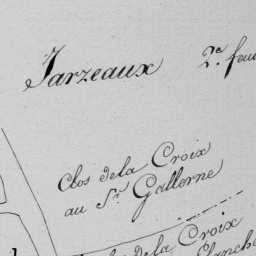 Jarzeaux 2.e feu
Clos de la Croix
au Sr. Gallerne
de la Croix